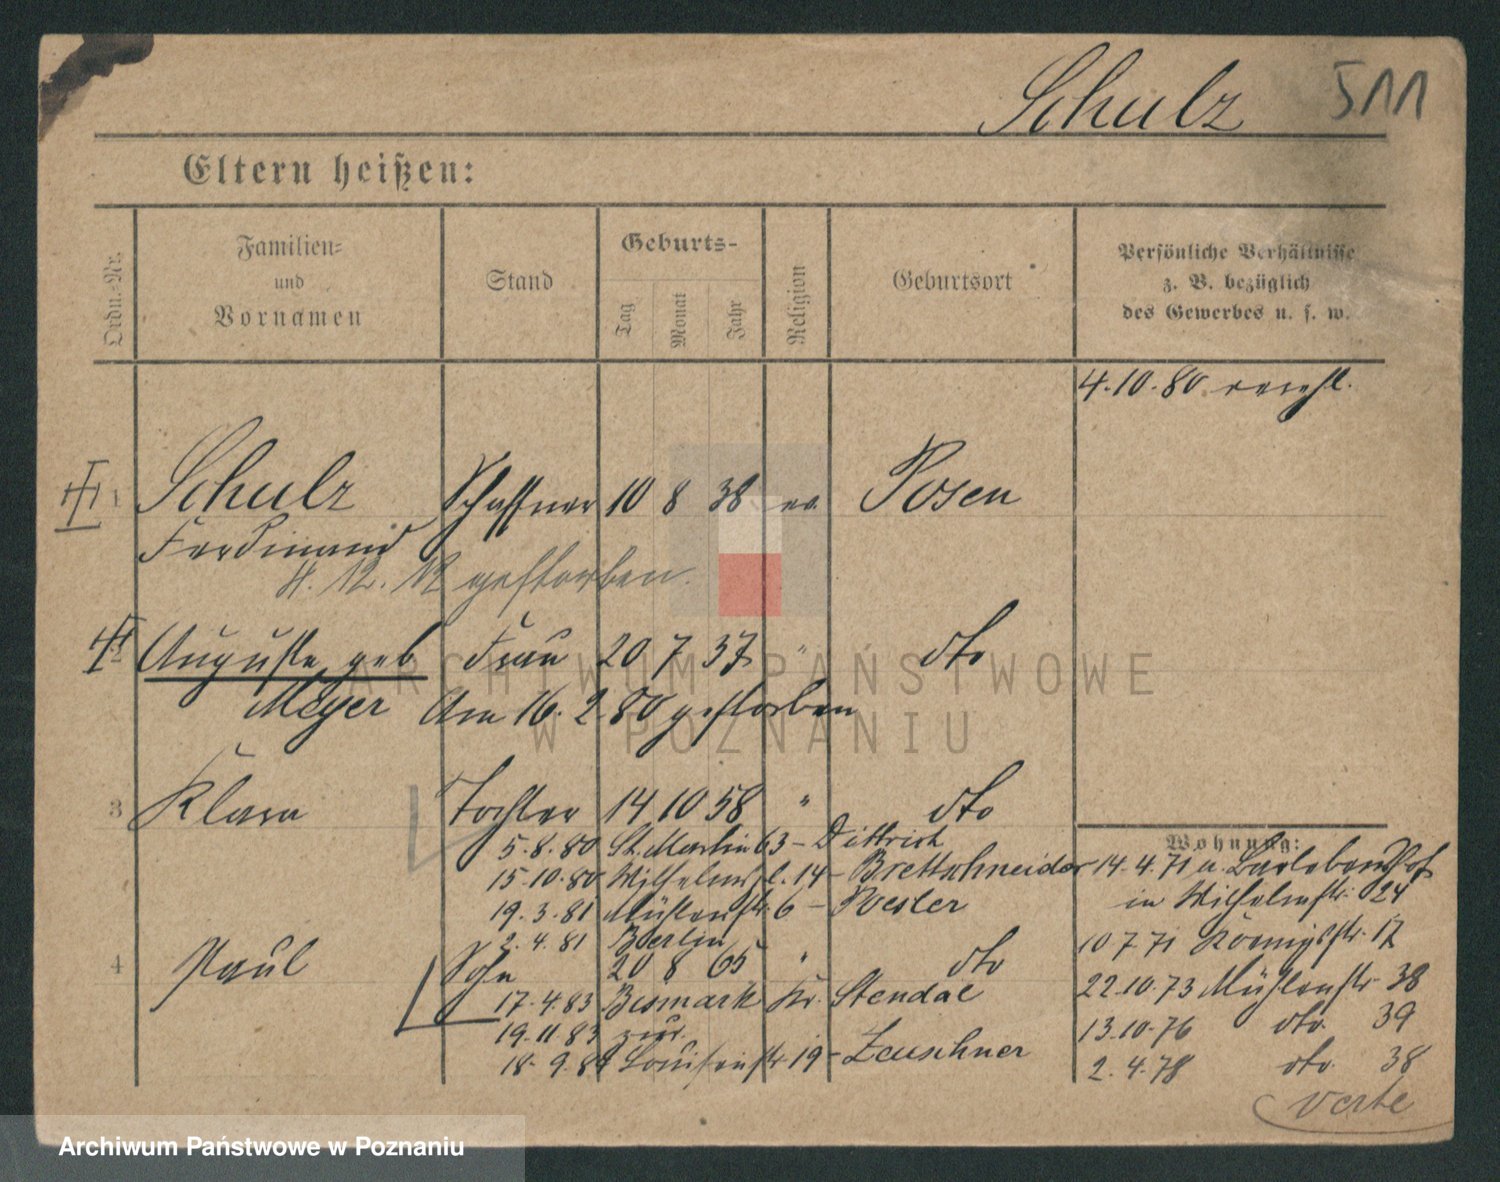 Schulz 511
Eltern heißen:
Ordn.-Nr.
Familien-
und
Vornamen
Stand
Geburts-
Tag
Monat
Jahr
Religion
Geburtsort
Persönliche Verhältnisse
z. B. bezüglich
des Gewerbes u. s. w.
4.10.80
1 Schulz Schaffner 10 8 38 ev. Posen
Ferdinand
4. 12. 12 gestorben.
Auguste geb Frau 20 7 37 " dto
Meyer Am 16. 2. 80 gestorben
3 Klara Tochter 14 10 58 " dto
5.8.80 St. Martin 63 - Dittrich
15.10.80 Wilhelmspl. 14 - Brettschneider
19.3.81 Mühlenstr. 6 - Roesler
2.4.81 Berlin
4 Paul Sohn 20 8 65 " dto
17.4.83 Bismark Kr. Stendal
19.11.83 zur.
18.9.84 Louisenstr. 19 - Zeuschner
Wohnung:
14.4.71 u.
in Wilhelmstr. 24
10 7 71 Königsstr. 17
22.10.73 Mühlenstr. 38
13.10.76 dto. 39
2.4.78 dto. 38
verte
ARCHIWUM PAŃSTWOWE
W POZNANIU
Archiwum Państwowe w Poznaniu